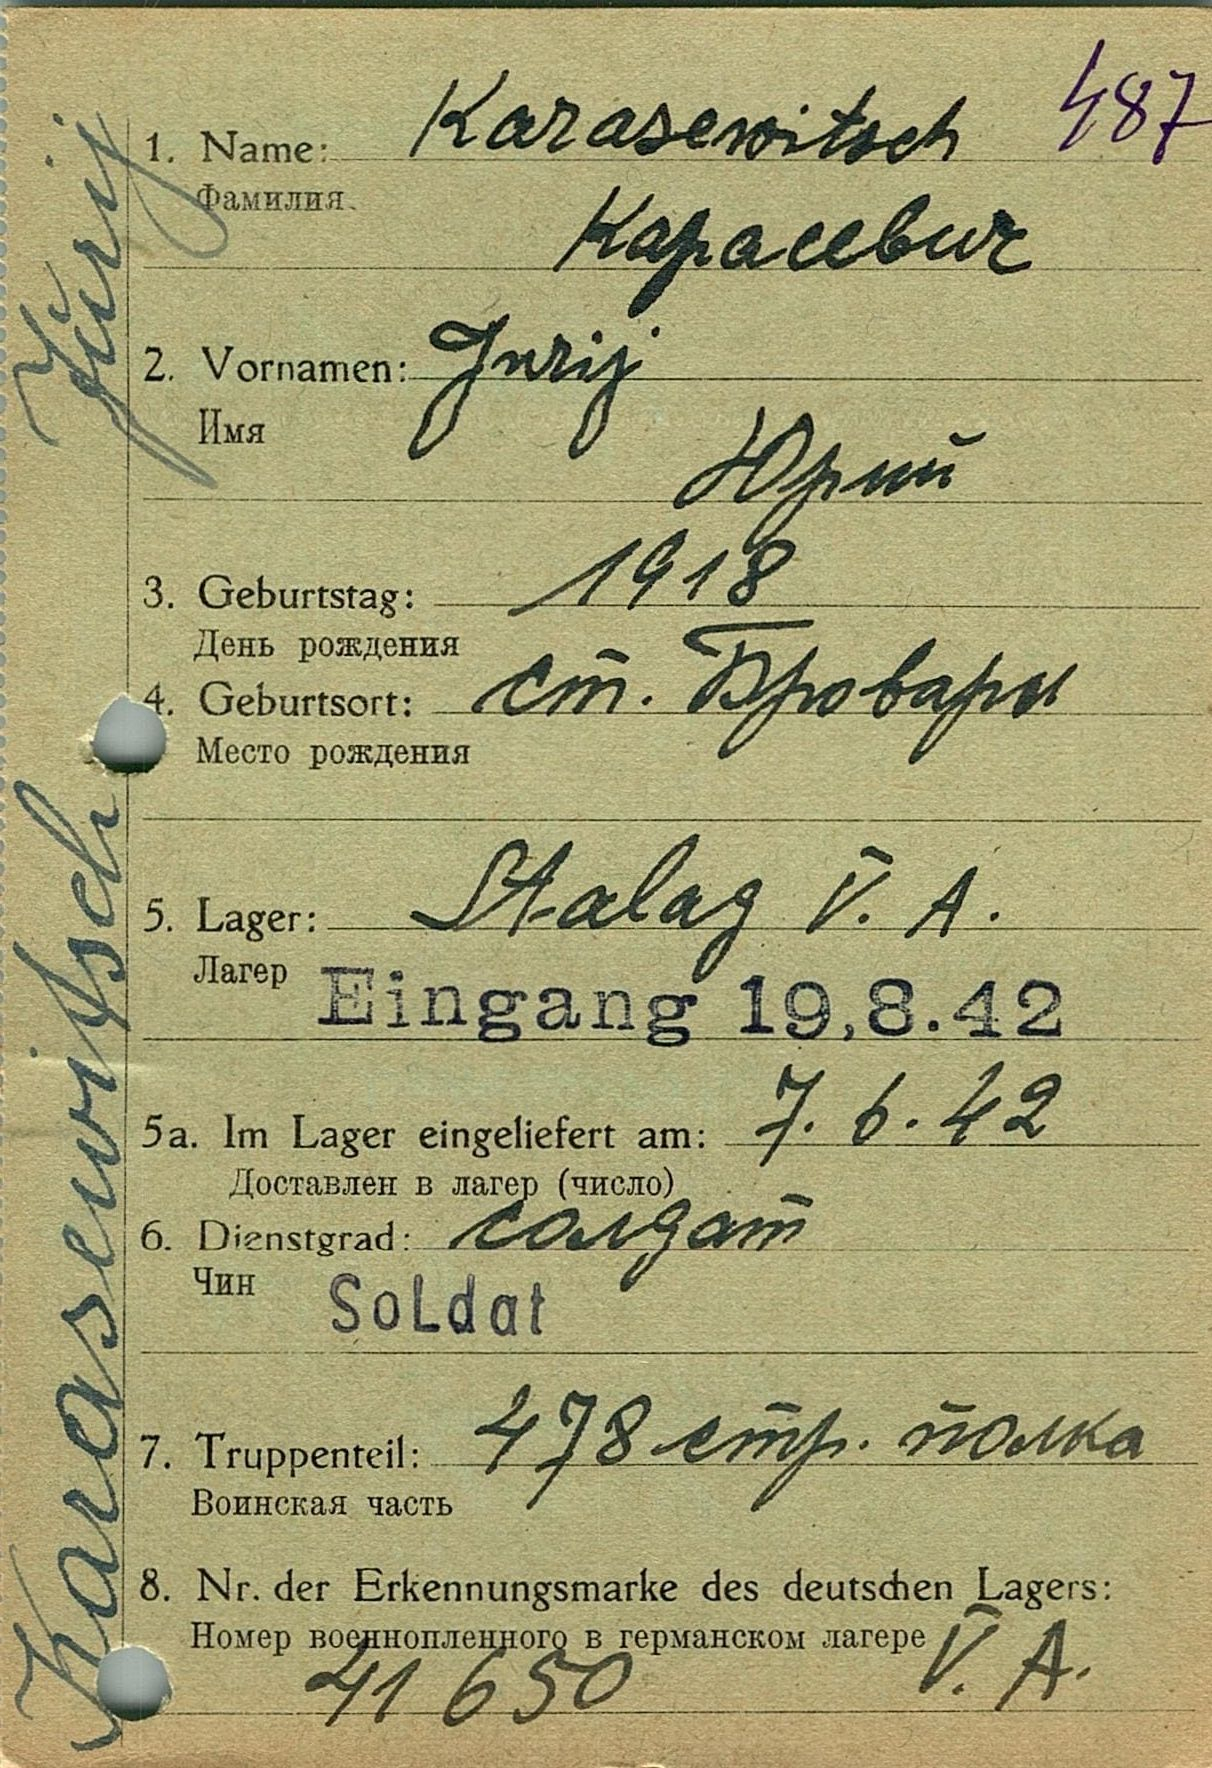 487
1. Name: Karasewitsch
Фамилия
Карасевич
2. Vornamen: Jurij
Имя
Юрий
3. Geburtstag: 1918
День рождения
4. Geburtsort: ст. Бровары
Место рождения
5. Lager: Stalag V. A.
Лагер
Eingang 19.8.42
5a. Im Lager eingeliefert am: 7. 6. 42
Доставлен в лагер (число)
6. Dienstgrad: солдат
Чин
Soldat
7. Truppenteil: 478 стр. полка
Воинская часть
8. Nr. der Erkennungsmarke des deutschen Lagers:
Номер военнопленного в германском лагере
41 650 V. A.
Karasewitsch Jurij